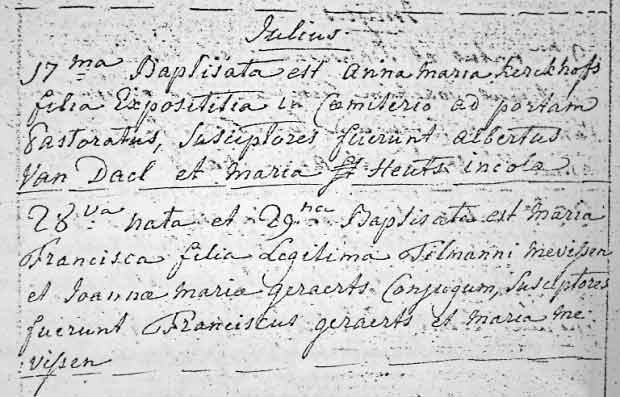 Julius
17ma Baptisata est Anna maria Kerckhofs
filia Exposititia in Cœmiterio ad portam
Pastoratus, Susceptores fuerunt Albertus
Van Dael et maria Heuts incolæ
28va nata et 29na Baptisata est maria
Francisca filia Legitima Tilmanni mevissen
et Joannæ mariæ geraerts Conjugum, Susceptores
fuerunt Franciscus geraerts et maria me-
vissen